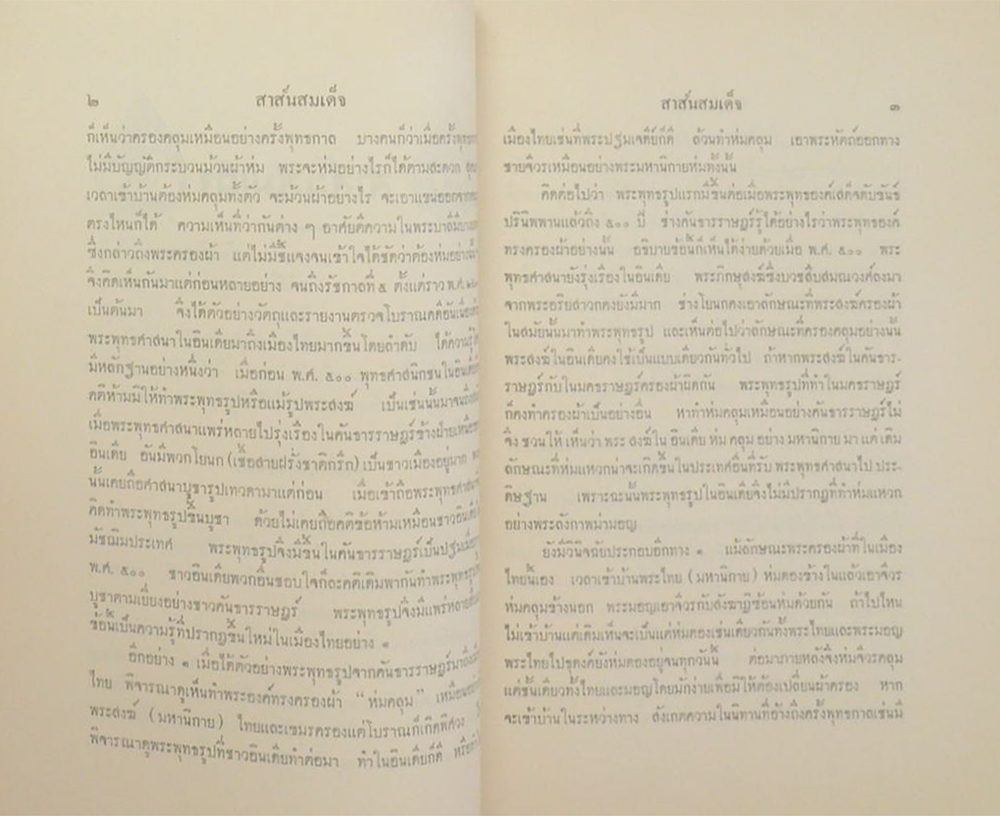 ๒
สาส์นสมเด็จ
ก็เห็นว่าครองคลุมเหมือนอย่างครั้งพุทธกาล บางคนก็ว่าเมื่อครั้งพุทธ
ไม่มีบัญญัติกระบวนม้วนผ้าห่ม พระจะห่มอย่างไรก็ได้ตามสะดวก
เวลาเข้าบ้านต้องห่มคลุมทั้งตัว จะม้วนผ้าอย่างไร จะเอาแขนออก
ตรงไหนก็ได้ ความเห็นที่ว่ากันต่าง ๆ อาศัยตีความในพระบาลี
ซึ่งกล่าวถึงพระครองผ้า แต่ไม่มีชี้แจงจนเข้าใจได้ชัดว่าต้องห่มอย่าง
จึงคิดเห็นกันมาแต่ก่อนหลายอย่าง จนถึงรัชกาลที่ ๕ ตั้งแต่ราว พ.ศ.
เป็นต้นมา จึงได้ตัวอย่างวัตถุและรายงานตรวจโบราณคดีอันเนื่อง
พระพุทธศาสนาในอินเดียมาถึงเมืองไทยมากขึ้นโดยลำดับ ได้ความรู้
มีหลักฐานอย่างหนึ่งว่า เมื่อก่อน พ.ศ. ๕๐๐ พุทธศาสนิกชนในอินเดีย
คติห้ามมิให้ทำพระพุทธรูปหรือแม้รูปพระสงฆ์ เป็นเช่นนั้นมาจน
เมื่อพระพุทธศาสนาแพร่หลายไปรุ่งเรืองในคันธารราษฎร์ข้างฝ่ายเหนือ
อินเดีย อันมีพวกโยนก (เชื้อสายฝรั่งชาติกรีก) เป็นชาวเมืองอยู่มาก
นั้นเคยถือศาสนาบูชารูปเทวดามาแต่ก่อน เมื่อเข้าถือพระพุทธศาสนา
คิดทำพระพุทธรูปขึ้นบูชา ด้วยไม่เคยถือคติข้อห้ามเหมือนชาวอินเดีย
มัชฌิมประเทศ พระพุทธรูปจึงมีขึ้นในคันธารราษฎร์เป็นปฐมเมื่อ
พ.ศ. ๕๐๐ ชาวอินเดียพวกอื่นชอบใจก็ละคติเดิมพากันทำพระพุทธรูป
บูชาตามเยี่ยงอย่างชาวคันธารราษฎร์ พระพุทธรูปจึงมีแพร่หลาย
ข้อนี้เป็นความรู้ที่ปรากฏขึ้นใหม่ในเมืองไทยอย่าง ๑
อีกอย่าง ๑ เมื่อได้ตัวอย่างพระพุทธรูปจากคันธารราษฎร์มาถึง
ไทย พิจารณาดูเห็นทำพระองค์ทรงครองผ้า “ห่มคลุม” เหมือน
พระสงฆ์ (มหานิกาย) ไทยและเขมรครองแต่โบราณก็เกิดพิศวง
พิจารณาดูพระพุทธรูปที่ชาวอินเดียทำต่อมา ทำในอินเดียก็ดี
สาส์นสมเด็จ
๓
เมืองไทยเช่นที่พระปฐมเจดีย์ก็ดี ล้วนทำห่มคลุม เอาพระหัตถ์ออกทาง
ชายจีวรเหมือนอย่างพระมหานิกายห่มทั้งนั้น
คิดต่อไปว่า พระพุทธรูปแรกมีขึ้นต่อเมื่อพระพุทธองค์เสด็จดับขันธ์
ปรินิพพานแล้วถึง ๕๐๐ ปี ช่างคันธารราษฎร์รู้ได้อย่างไรว่าพระพุทธองค์
ทรงครองผ้าอย่างนั้น อธิบายข้อนี้ก็เห็นได้ง่ายด้วยเมื่อ พ.ศ. ๕๐๐ พระ
พุทธศาสนายังรุ่งเรืองในอินเดีย พระภิกษุสงฆ์ซึ่งบวชสืบสมณวงศ์ลงมา
จากพระอริยสาวกคงยังมีมาก ช่างโยนกคงเอาลักษณะที่พระสงฆ์ครองผ้า
ในสมัยนั้นมาทำพระพุทธรูป และเห็นต่อไปว่าลักษณะที่ครองคลุมอย่างนั้น
พระสงฆ์ในอินเดียคงใช้เป็นแบบเดียวกันทั่วไป ถ้าหากพระสงฆ์ในคันธาร-
ราษฎร์กับในมคธราษฎร์ครองผ้าผิดกัน พระพุทธรูปที่ทำในมคธราษฎร์
ก็คงทำครองผ้าเป็นอย่างอื่น หาทำห่มคลุมเหมือนอย่างคันธารราษฎร์ไม่
จึงชวนให้เห็นว่าพระสงฆ์ในอินเดียห่มคลุมอย่างมหานิกายมาแต่เดิม
ลักษณะที่ห่มแหวกน่าจะเกิดขึ้นในประเทศอื่นที่รับพระพุทธศาสนาไปประ-
ดิษฐาน เพราะฉะนั้นพระพุทธรูปในอินเดียจึงไม่มีปรากฏที่ทำห่มแหวก
อย่างพระลังกาพม่ามอญ
ยังมีวินิจฉัยประกอบอีกทาง ๑ แม้ลักษณะพระครองผ้าที่ในเมือง
ไทยนี้เอง เวลาเข้าบ้านพระไทย (มหานิกาย) ห่มดองข้างในแล้วเอาจีวร
ห่มคลุมข้างนอก พระมอญเอาจีวรกับสังฆาฏิซ้อนห่มด้วยกัน ถ้าไปไหน
ไม่เข้าบ้านแต่เดิมเห็นจะเป็นแต่ห่มดองเช่นเดียวกันทั้งพระไทยและพระมอญ
พระไทยไปธุดงค์ยังห่มดองอยู่จนทุกวันนี้ ต่อมาภายหลังจึงห่มจีวรคลุม
แต่ชั้นเดียวทั้งไทยและมอญโดยมักง่ายเพื่อมิให้ต้องเปลี่ยนผ้าครอง หาก
จะเข้าบ้านในระหว่างทาง สังเกตความในนิทานที่อ้างถึงครั้งพุทธกาลเช่นมี